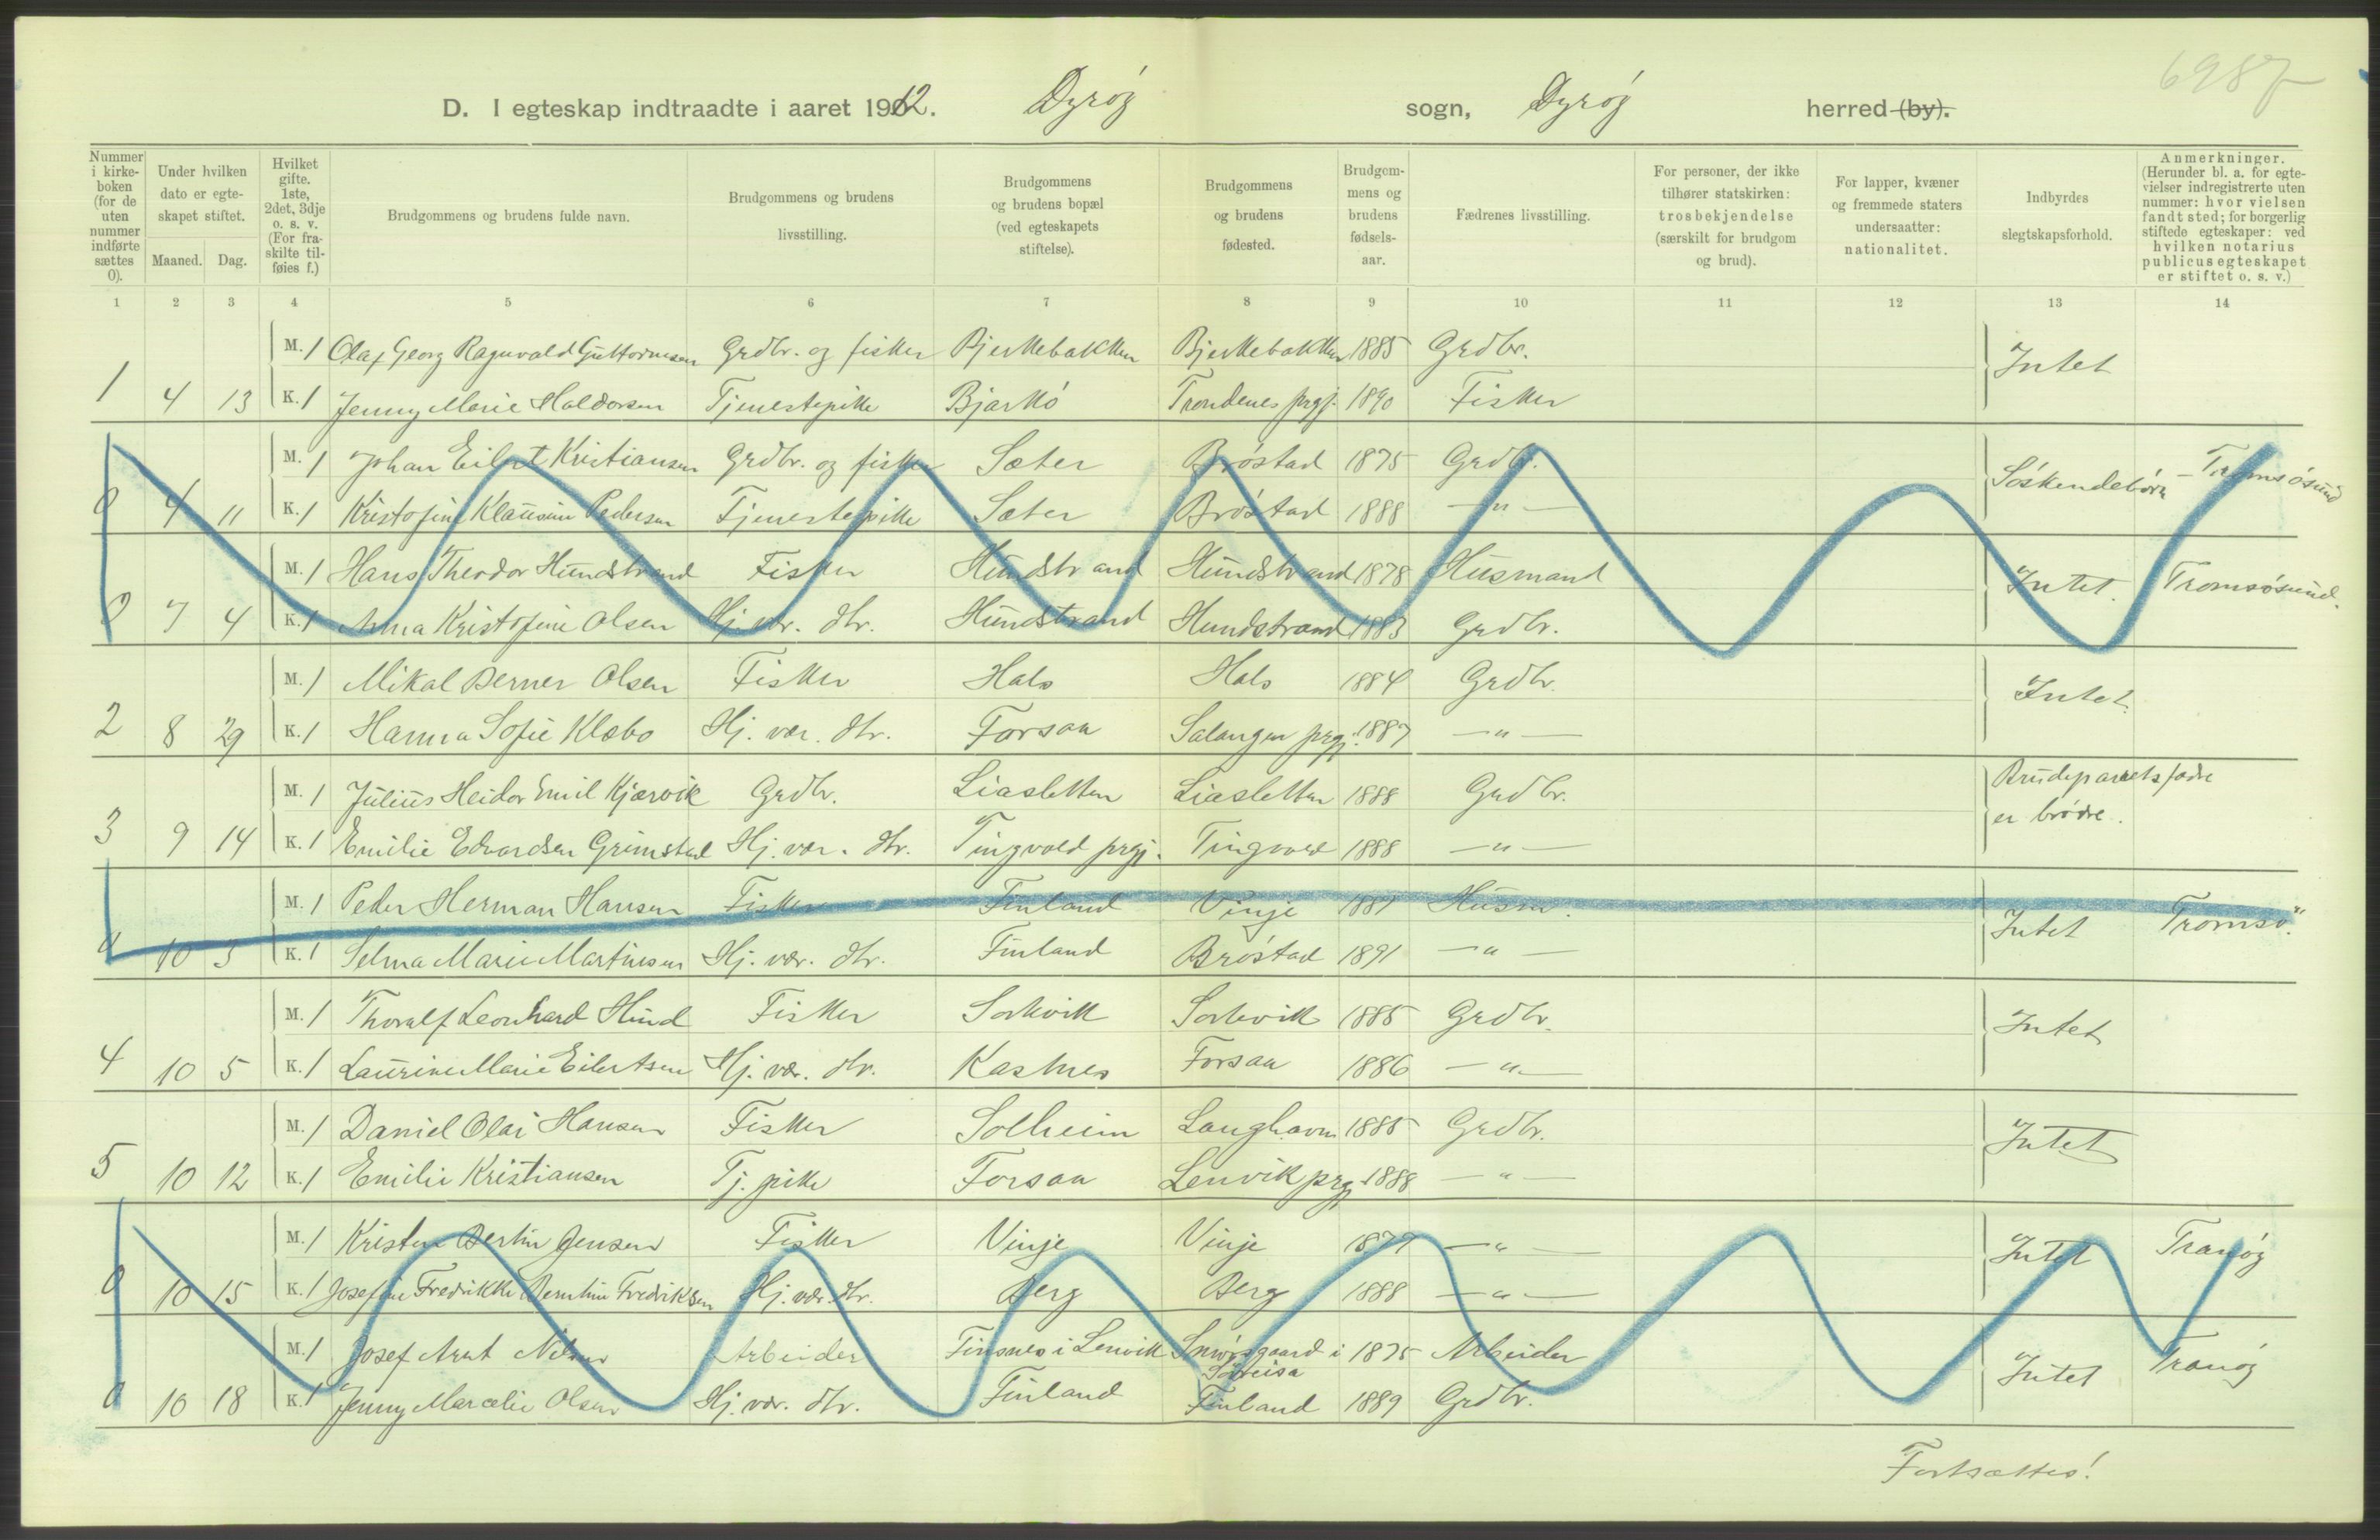 6987
D. I egteskap indtraadte i aaret 1912. Dyrøy sogn, Dyrøy herred (by).
Nummer i kirkeboken (for de uten nummer indførte sættes 0).
Under hvilken dato er egteskapet stiftet.
Maaned. Dag.
Hvilket gifte. 1ste, 2det, 3dje o. s. v. (For fraskilte tilføies f.)
Brudgommens og brudens fulde navn.
Brudgommens og brudens livsstilling.
Brudgommens og brudens bopæl (ved egteskapets stiftelse).
Brudgommens og brudens fødested.
Brudgommens og brudens fødselsaar.
Fædrenes livsstilling.
For personer, der ikke tilhører statskirken: trosbekjendelse (særskilt for brudgom og brud).
For lapper, kvæner og fremmede staters undersaatter: nationalitet.
Indbyrdes slegtskapsforhold.
Anmerkninger. (Herunder bl. a. for egtevielser indregistrerte uten nummer: hvor vielsen fandt sted; for borgerlig stiftede egteskaper: ved hvilken notarius publicus egteskapet er stiftet o. s. v.)
1 2 3 4 5 6 7 8 9 10 11 12 13 14
M. 1 Olaf Georg Ragnvald Guttormsen Grdbr. og fisker Bjerkebakken Bjerkebakken 1885 Grdbr. Intet
1 4 13 K. 1 Jenny Marie Haldorsen Tjenestepike Bjarkö Trondenes prgj. 1890 Fisker
M. 1 Johan Eilert Kristiansen Grdbr. og fisker Sæter Bröstad 1875 Grdbr. Söskendebörn - Tromsösund
0 4 11 K. 1 Kristofine Klausine Pedersen Tjenestepike Sæter Bröstad 1888 — " —
M. 1 Hans Theodor Hundstrand Fisker Hundstrand Hundstrand 1878 Husmand Intet. Tromsösund.
0 7 4 K. 1 Anna Kristofine Olsen Hj. vær. dtr. Hundstrand Hundstrand 1883 Grdbr.
M. 1 Mikal Berner Olsen Fisker Hals Hals 1884 Grdbr. Intet.
2 8 29 K. 1 Hanna Sofie Klæbo Hj. vær. dtr. Forsaa Salangen prgj. 1887 — " —
M. 1 Julius Heidor Emil Kjærvik Grdbr. Liasletten Liasletten 1888 Grdbr. Brudeparrets fædre
3 9 14 K. 1 Emilie Edvardsen Grimstad Hj. vær. dtr. Tingvold prgj. Tingvold 1888 — " — er brödre.
M. 1 Peder Herman Hansen Fisker Finland Vinje 1881 Husm. Intet Tromsö.
0 10 3 K. 1 Selma Marie Martinsen Hj. vær. dtr. Finland Bröstad 1891 — " —
M. 1 Thoralf Leonhard Hind Fisker Sorkvik Sorkvik 1885 Grdbr. Intet
4 10 5 K. 1 Laurine Marie Eilertsen Hj. vær. dtr. Kastnes Forsaa 1886 — " —
M. 1 Daniel Olai Hansen Fisker Solheim Langhavn 1885 Grdbr. Intet
5 10 12 K. 1 Emilie Kristiansen Tj. pike Forsaa Lenvik prgj. 1888 — " —
M. 1 Kristen Bertin Jensen Fisker Vinje Vinje 1877 — " — Intet Tranöy
0 10 15 K. 1 Josefine Fredrikke Berntine Fredriksen Hj. vær. dtr. Berg Berg 1888 — " —
M. 1 Josef Arnt Nilsen Arbeider Finsnes i Lenvik i Söreisa 1875 Arbeider Intet Tranöy
0 10 18 K. 1 Jenny Marcelie Olsen Hj. vær. dtr. Finland Finland 1889 Grdbr.
Fortsættes!